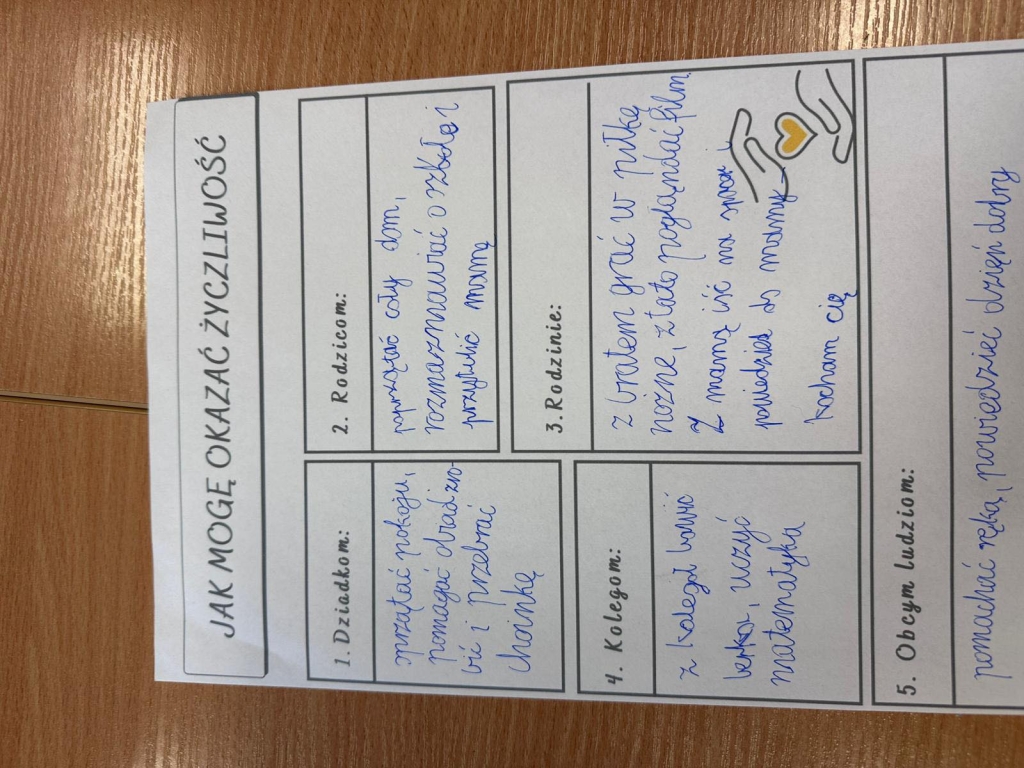 JAK MOGĘ OKAZAĆ ŻYCZLIWOŚĆ
1. Dziadkom:
sprzątać pokoju,
pomagać dziadzio-
wić i przebrać
choinkę
2. Rodzicom:
poprzątać cały dom,
rozmawiać o szkole i
przytulić mamę
3. Rodzinie:
z bratem grać w piłkę
nożne, z tato poglądać film
z mamą iść na
powiedzieć do mamy
kocham cię
4. Kolegom:
z kolegą bawić
uczyć
matematyka
5. Obcym ludziom:
pomachać ręką, powiadzieć dzięń dobry